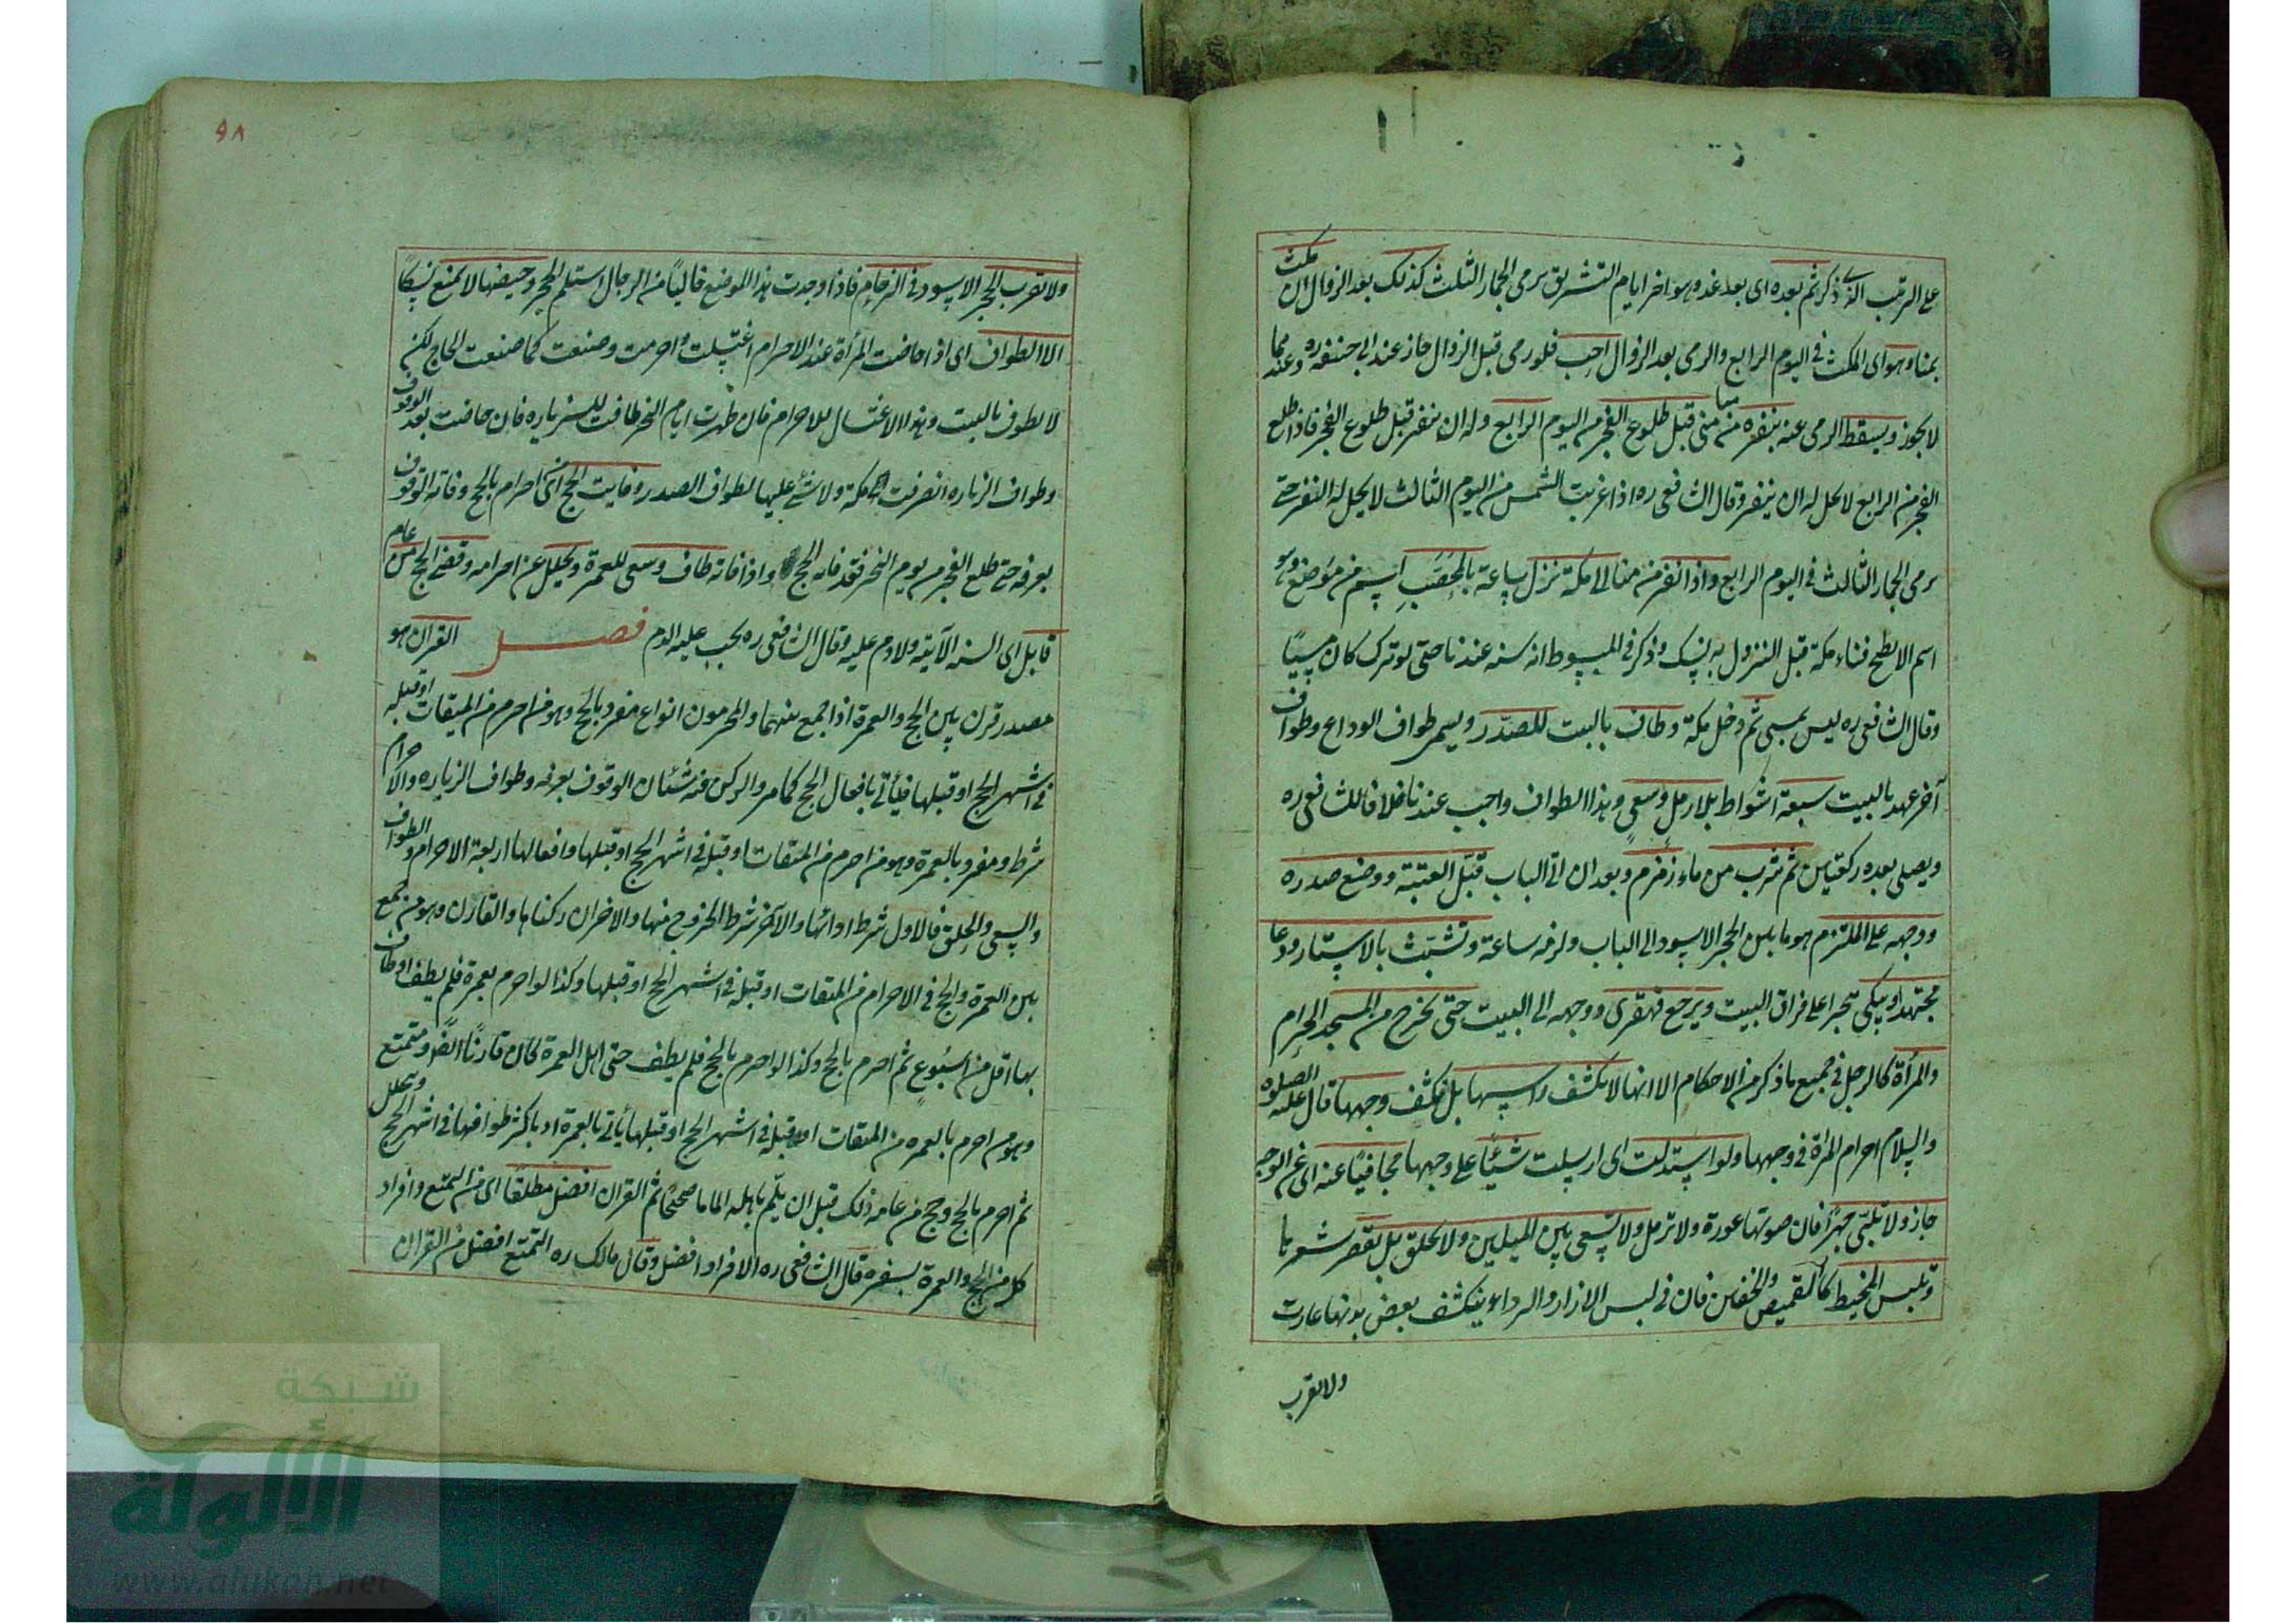 على الترتيب الذى ذكر ثم بعده اى بعد غد وهو اخر ايام التشريق يرمى الجمار الثلث كذلك بعد الزوال ان مكث
بمنا وهو اى المكث فى اليوم الرابع والرمى بعد الزوال احب فلو رمى قبل الزوال جاز عند ابى حنيفه ره وعندهما
لا يجوز ويسقط الرمى عنه بنفره من منى قبل طلوع الفجر من اليوم الرابع وله ان ينفر قبل طلوع الفجر فاذا طلع
الفجر من الرابع لا يحل له ان ينفر وقال الشافعى ره اذا غربت الشمس من اليوم الثالث لا يحل له النفر حتى
يرمى الجمار الثالث فى اليوم الرابع واذا نفر من منا الى مكة نزل ساعة بالمحصب اسم من موضع وهو
اسم الابطح فناء مكة قبل النزول به نسك وذكر فى المبسوط انه سنه عندنا حتى لو ترك كان مسيئًا
وقال الشافعى ره ليس بمسى ثم دخل مكة وطاف بالبيت للصدر ويسمى طواف الوداع وطواف
آخر عهد بالبيت سبعة اشواط بلا رمل وسعى وهذا الطواف واجب عندنا خلافا للشافعى ره
ويصلى بعده ركعتين ثم شرب من ماء زمزم وبعد ان اتى الباب قبّل العتبة ووضع صدره
ووجهه على الملتزم هو ما بين الحجر الاسود الى الباب ولزمه ساعة وتشبّث بالاستار ودعا
مجتهدا ويبكى تحسرا على فراق البيت ويرجع قهقرى ووجهه الى البيت حتى يخرج من المسجد الحرام
والمرأة كالرجل فى جميع ما ذكر من الاحكام الا انها لا تكشف راسها بل تكشف وجهها قال عليه الصلوه
والسلام احرام المرأة فى وجهها ولو استدلت اى ارسلت شيئًا على وجهها مجافيًا عنه اى عن الوجه
جاز ولا تلبّى جهرًا فان صوتها عورة ولا ترمل ولا تسعى بين الميلين ولا تحلق بل تقصر شعرها
وتلبس المخيط كالقميص والخفين فان فى لبس الازار والرداء ينكشف بعض بدنها عادت
ولا تقرب
٩٨
ولا تقرب الحجر الاسود فى الزحام فاذا وجدت هذا الموضع خاليًا من الرجال استلم الحجر وحيضها لا يمنع نسكًا
الا الطواف اى اذا حاضت المرأة عند الاحرام اغتسلت واحرمت وصنعت كما صنعت الحاج لكن
لا تطوف بالبيت وهذا الاغتسال للاحرام فان طهرت ايام النحر طافت للزياره فان حاضت بعد الوقوف
وطواف الزياره انصرفت من مكة ولا شئ عليها لطواف الصدر وفايت الحج اى احرام بالحج وفاته الوقوف
بعرفه حتى طلع الفجر من يوم النحر فقد فاته الحج واذا فاته طاف وسعى للعمرة وتحلل عن احرامه وقضى الحج من عام
قابل اى السنه الآتيه ولا دم عليه وقال الشافعى ره يجب عليه الدم فصل القران هو
مصدر قرن بين الحج والعمرة اذا جمع بينهما والمحرمون انواع مفرد بالحج وهو من احرم من الميقات او قبله
فى اشهر الحج او قبلها فيأتى بافعال الحج كما مر والركن منه شئان الوقوف بعرفه وطواف الزياره والاحرام
شرط ومفرد بالعمرة وهو من احرم من الميقات او قبله فى اشهر الحج او قبلها وافعالها اربعة الاحرام والطواف
والسعى والحلق فالاول شرط ادائها والآخر شرط الخروج منها والاخران ركناها والقارن وهو من جمع
بين العمرة والحج فى الاحرام من الميقات او قبله فى اشهر الحج او قبلها وكذا لو احرم بعمرة فلم يطف او طاف
بها اقل من اسبوع ثم احرم بالحج وكذا لو احرم بالحج فلم يطف حتى اهل العمرة كان قارنًا ايضًا ومتمتع
وهو من احرم بالعمره من الميقات او قبله فى اشهر الحج او قبلها يأتى بالعمرة او باكثر طوافها فى اشهر الحج ويتحلل
ثم احرم بالحج وحج من عامه ذلك قبل ان يلم باهله الماما صحيحًا ثم القران افضل مطلقًا اى من التمتع وافراد
كل من الحج والعمرة بسفره قال الشافعى ره الافراد افضل وقال مالك ره التمتع افضل من القران
شبكة
الألوكة
www.alukah.net